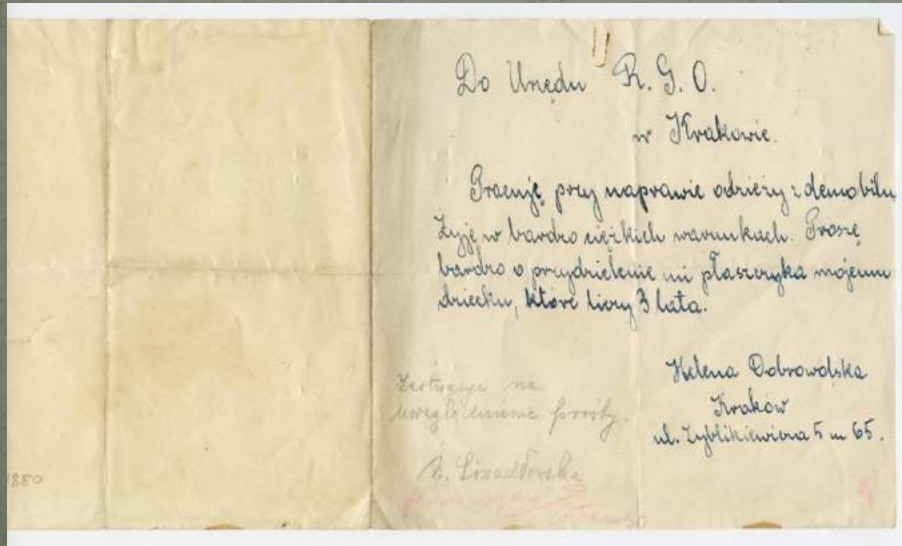 Do Urzędu R. G. O.
w Krakowie.
Pracuję przy naprawie odzieży z demobilu
Żyję w bardzo ciężkich warunkach. Proszę
bardzo o przydzielenie mi płaszczyka mojemu
dziecku, które liczy 3 lata.
Helena Dobrowolska
Kraków
ul. Zyblikiewicza 5 m 65.
Zasługuje na
uwzględnienie prośby.
1880